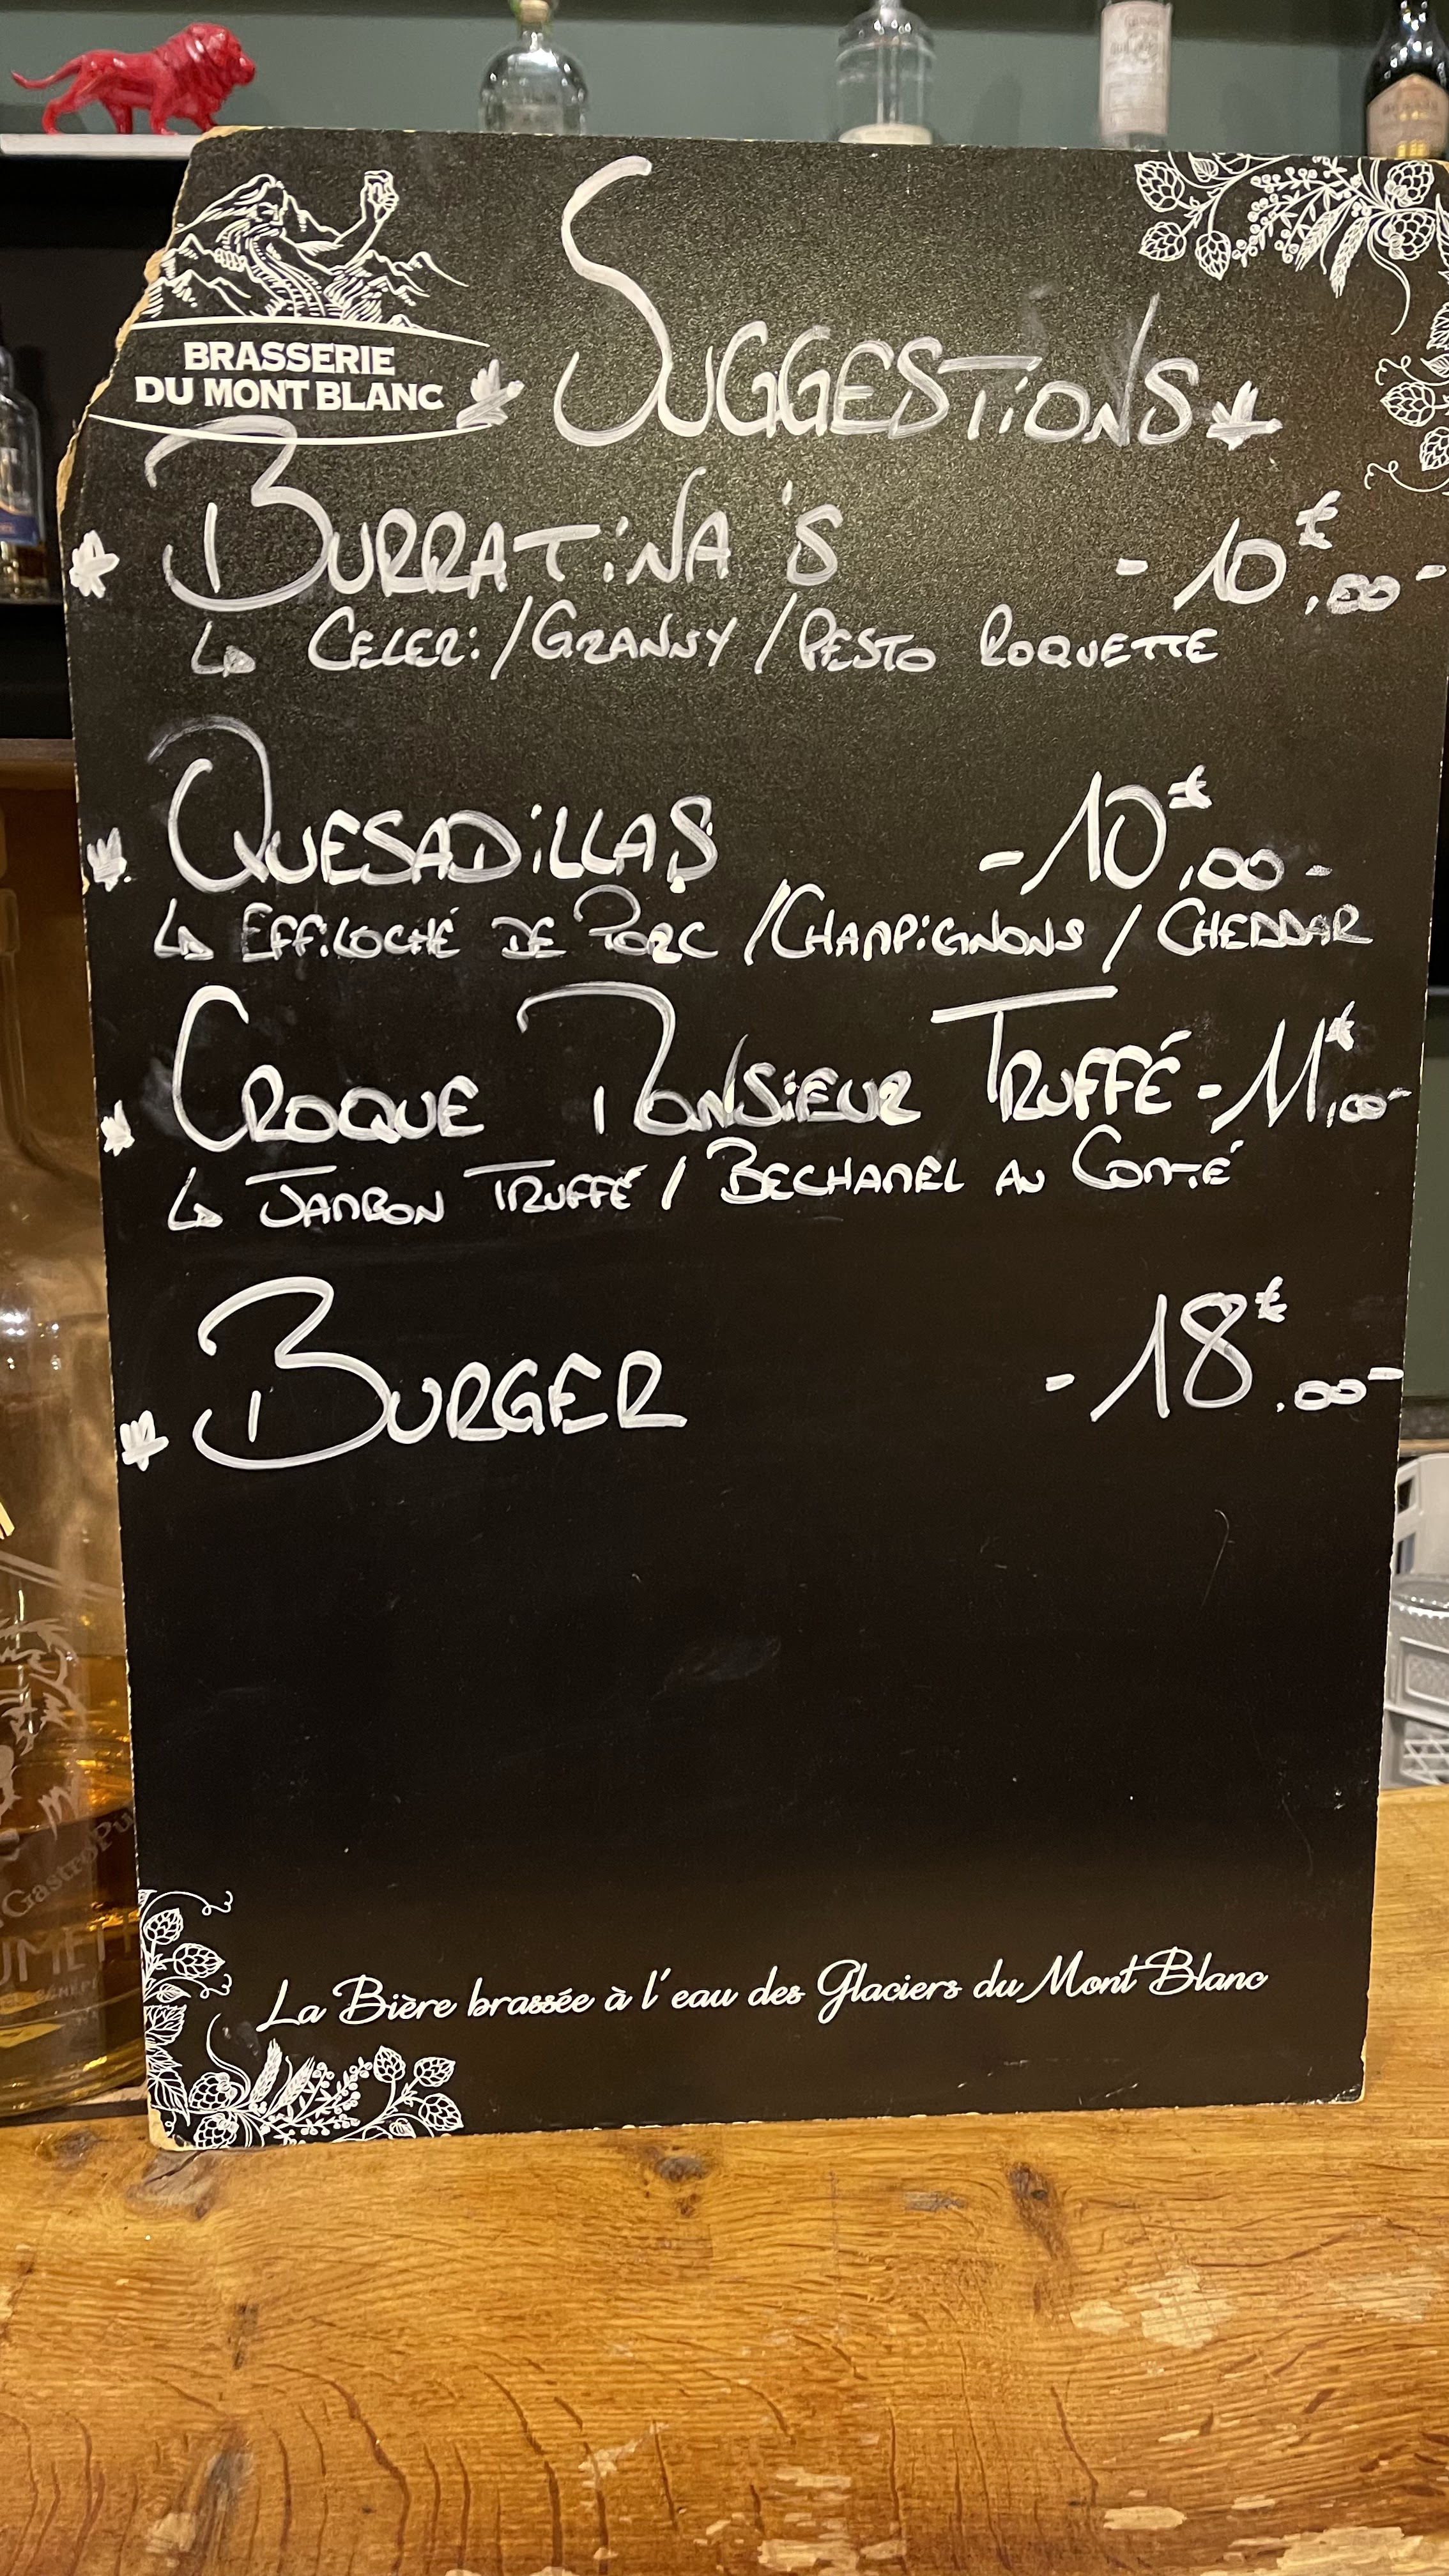 BRASSERIE
DU MONT BLANC
SUGGESTIONS
BURRATINA'S - 10€.00 -
CELERi / GRANNY / PESTO ROQUETTE
QUESADiLLAS - 10€.00 -
EFFiLOCHÉ DE PORC / CHAMPiGNONS / CHEDDAR
CROQUE MONSiEUR TRUFFÉ - 11€.00 -
JAMBON TRUFFÉ / BECHAMEL AU COMTÉ
BURGER - 18€.00 -
La Bière brassée à l'eau des Glaciers du Mont Blanc